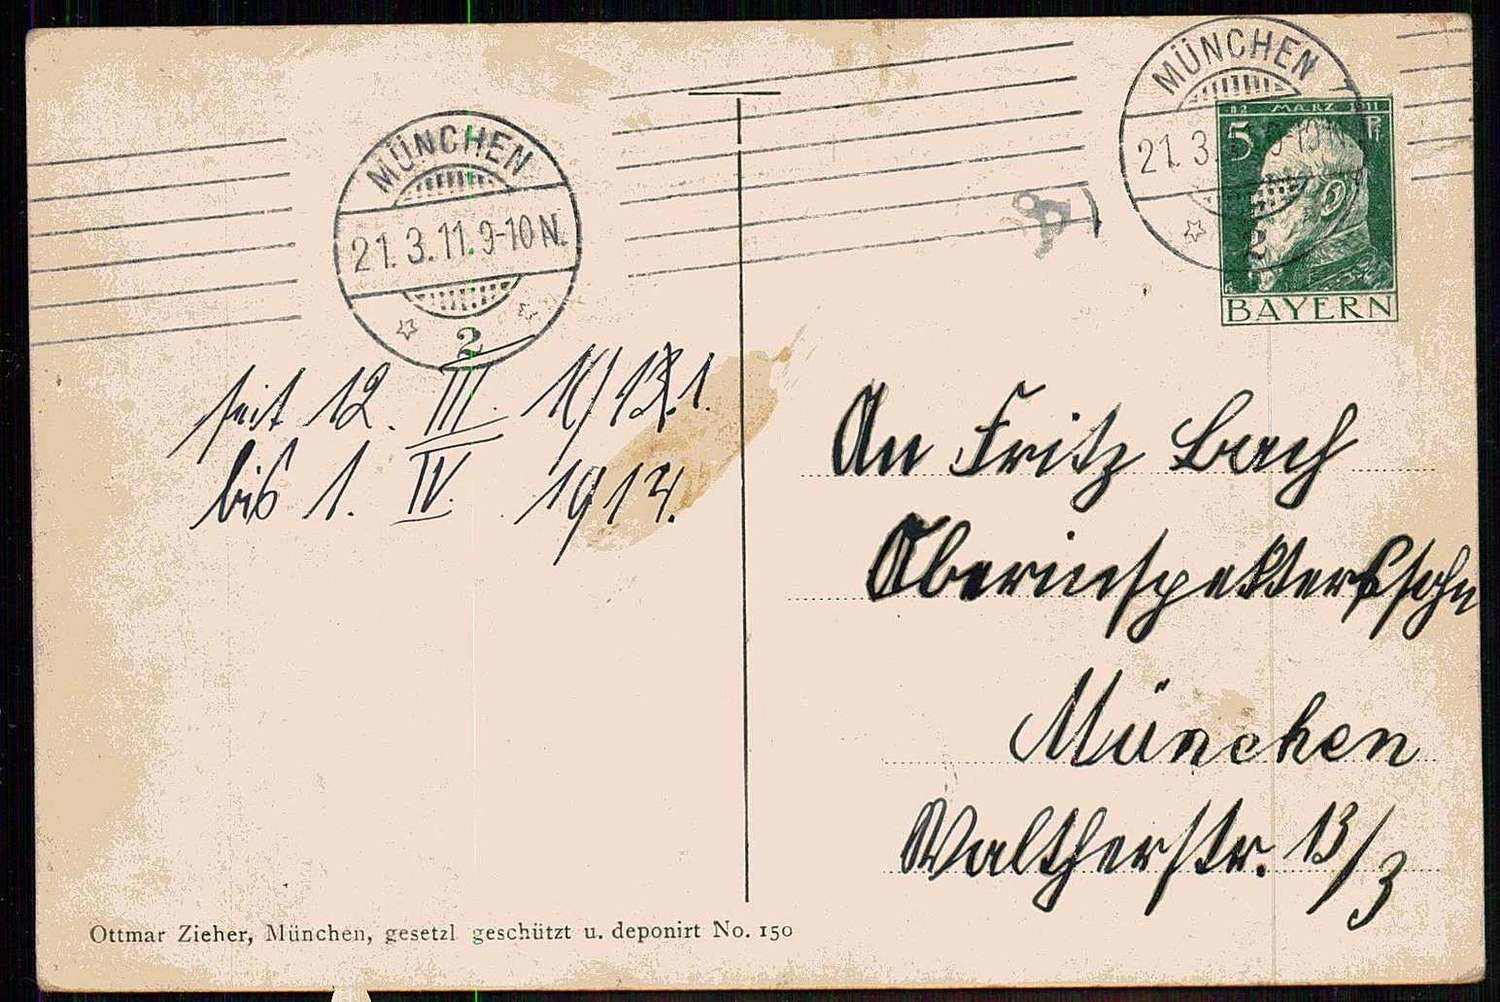 MÜNCHEN
21.3.11.9-10N.
2
MÜNCHEN
21.3.
2
12. MÄRZ 1911
5 Pf
BAYERN
seit 12. III. 11
bis 1. IV. 1914.
An Fritz Bach
Oberinspektorssohn
München
Waltherstr. 13/3
Ottmar Zieher, München, gesetzl geschützt u. deponirt No. 150